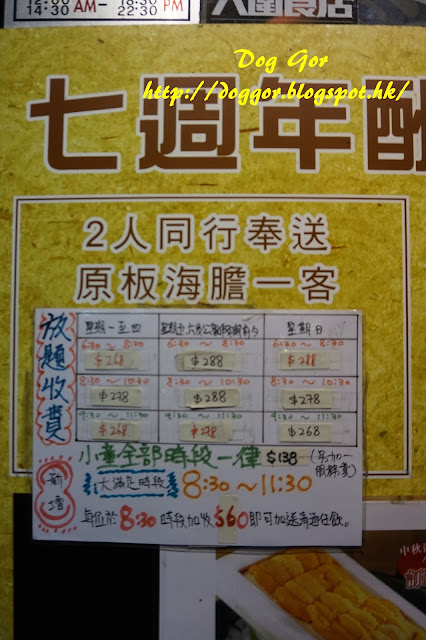 12:00 AM– 18:30 PM
14:30 22:30
大圍食店
Dog Gor
http://doggor.blogspot.hk/
七週年酬
2人同行奉送
原板海膽一客
放題收費
星期一至四 星期五,六及公眾假期前夕 星期日
6:30 ~ 8:30 6:30 ~ 8:30 6:30 ~ 8:30
$268 $288 $288
8:30 ~ 10:30 8:30 ~ 10:30 8:30 ~ 10:30
$278 $288 $278
9:30 ~ 11:30 9:30 ~ 11:30 9:30 ~ 11:30
$268 $278 $268
小童全部時段一律 $138 (另加一服務費)
新增
大滿足時段 8:30 ~ 11:30
每位於 8:30 時段加收 $60 即可加送清酒任飲。
小秋